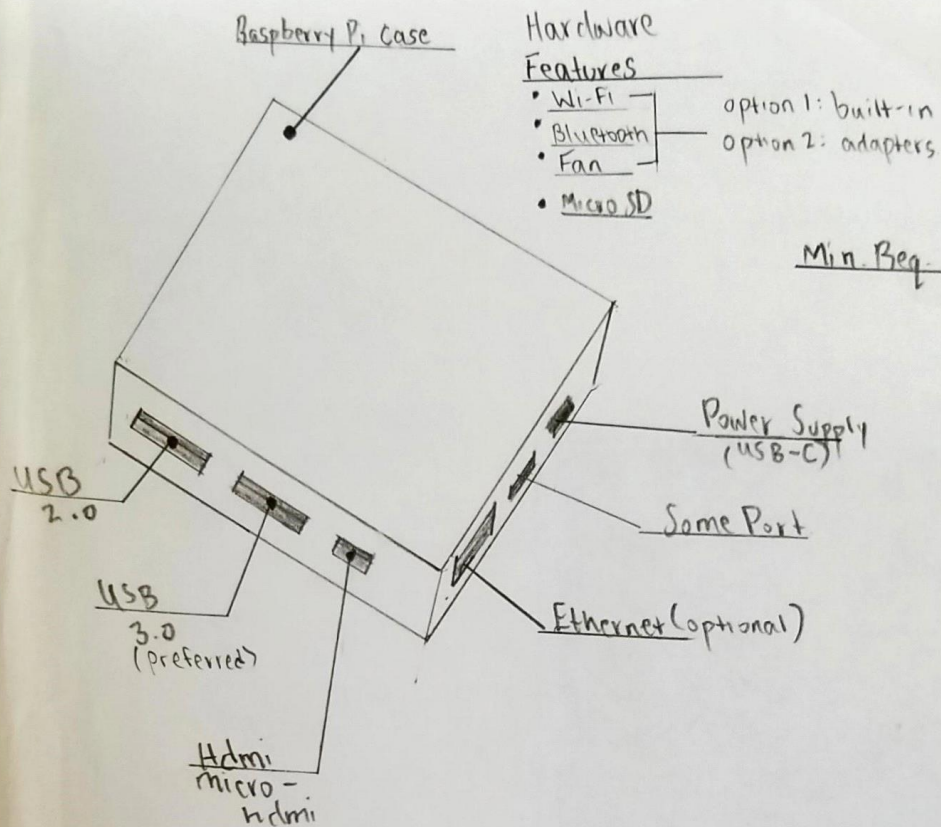 Raspberry Pi Case
Hardware
Features
• Wi-Fi
• Bluetooth
• Fan
• Micro SD
option 1: built-in
option 2: adapters
Min. Req.
Power Supply
(USB-C)
Some Port
Ethernet (optional)
USB
2.0
USB
3.0
(preferred)
Hdmi
micro-
hdmi